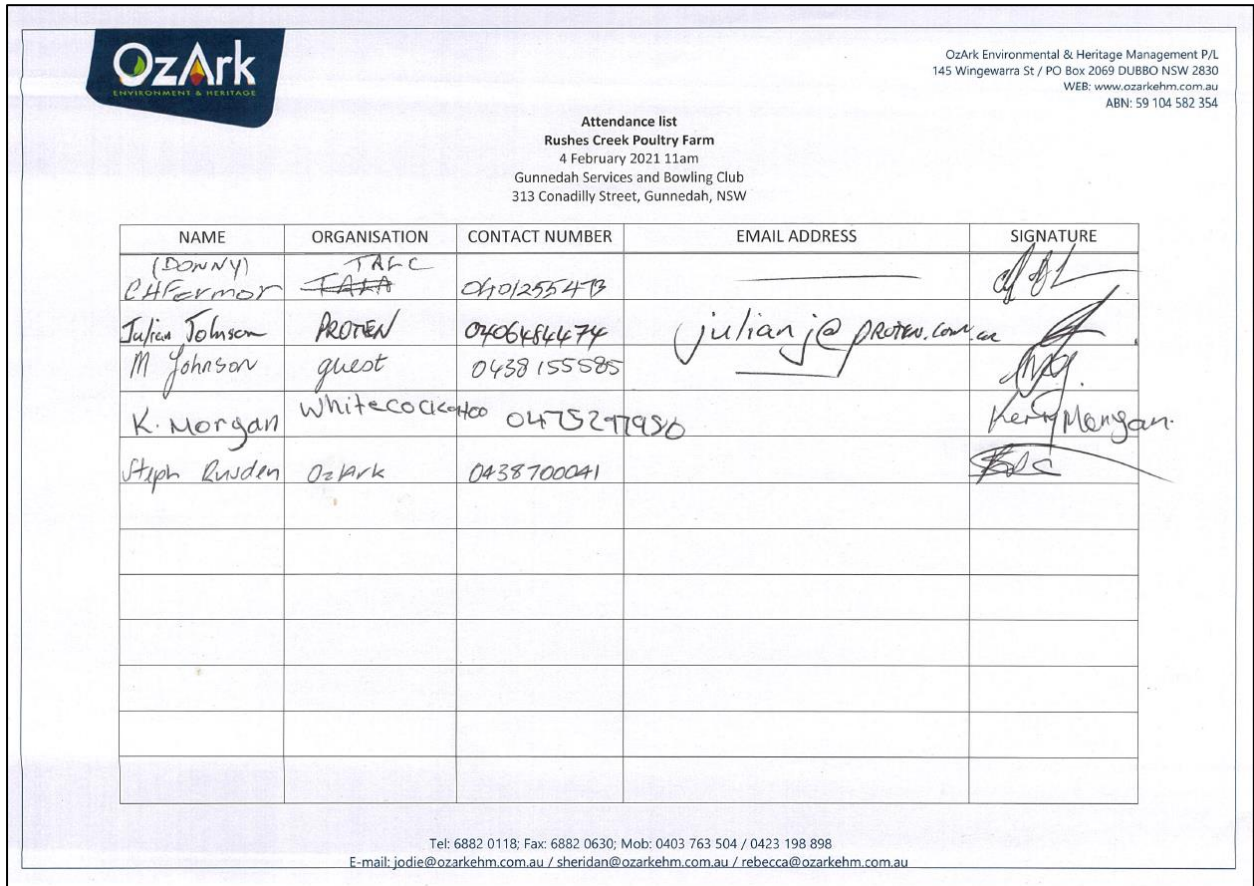 OzArk
ENVIRONMENT & HERITAGE
OzArk Environmental & Heritage Management P/L
145 Wingewarra St / PO Box 2069 DUBBO NSW 2830
WEB: www.ozarkehm.com.au
ABN: 59 104 582 354
Attendance list
Rushes Creek Poultry Farm
4 February 2021 11am
Gunnedah Services and Bowling Club
313 Conadilly Street, Gunnedah, NSW
NAME ORGANISATION CONTACT NUMBER EMAIL ADDRESS SIGNATURE
(DONNY) TALC
CHFermor 0401255473
Julian Johnson PROTEN 0406484474 julianj@proten.com.au
M Johnson guest 0438 155585
K. Morgan Whitecockatoo 0475297980 Kerry Morgan.
Steph Rusden OzArk 0438700041
Tel: 6882 0118; Fax: 6882 0630; Mob: 0403 763 504 / 0423 198 898
E-mail: jodie@ozarkehm.com.au / sheridan@ozarkehm.com.au / rebecca@ozarkehm.com.au